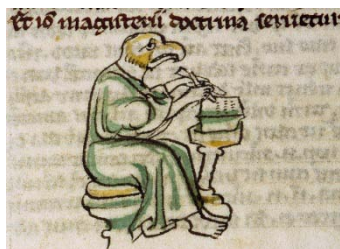 Et io magisterii doctrina seruetur